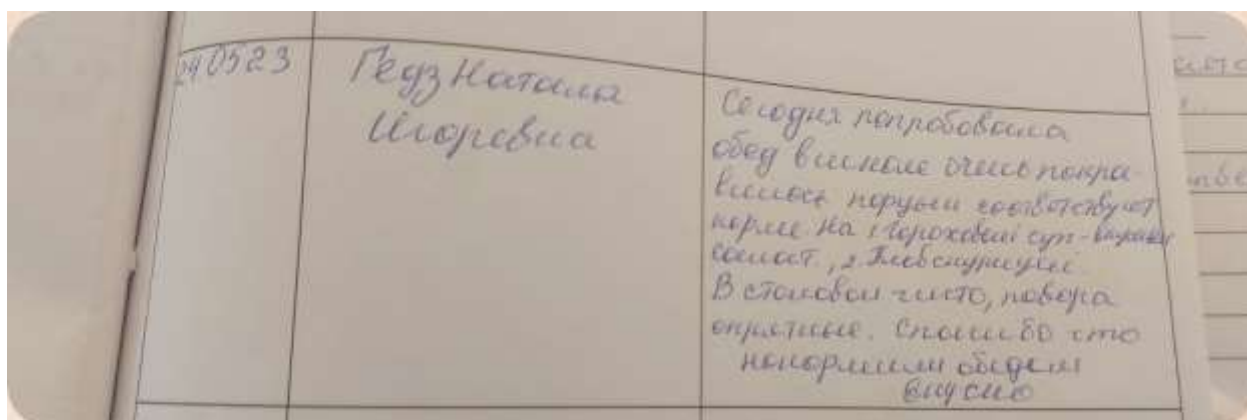 240523
Гедз Наталья
Игоревна
Сегодня попробовала
обед в школе очень понра-
вилось порции соответствуют
норме На 1 Гороховый суп-
салат, 2. Плов с курицей.
В столовой чисто, повора
опрятные. Спасибо что
накормили обедом
Вкусно